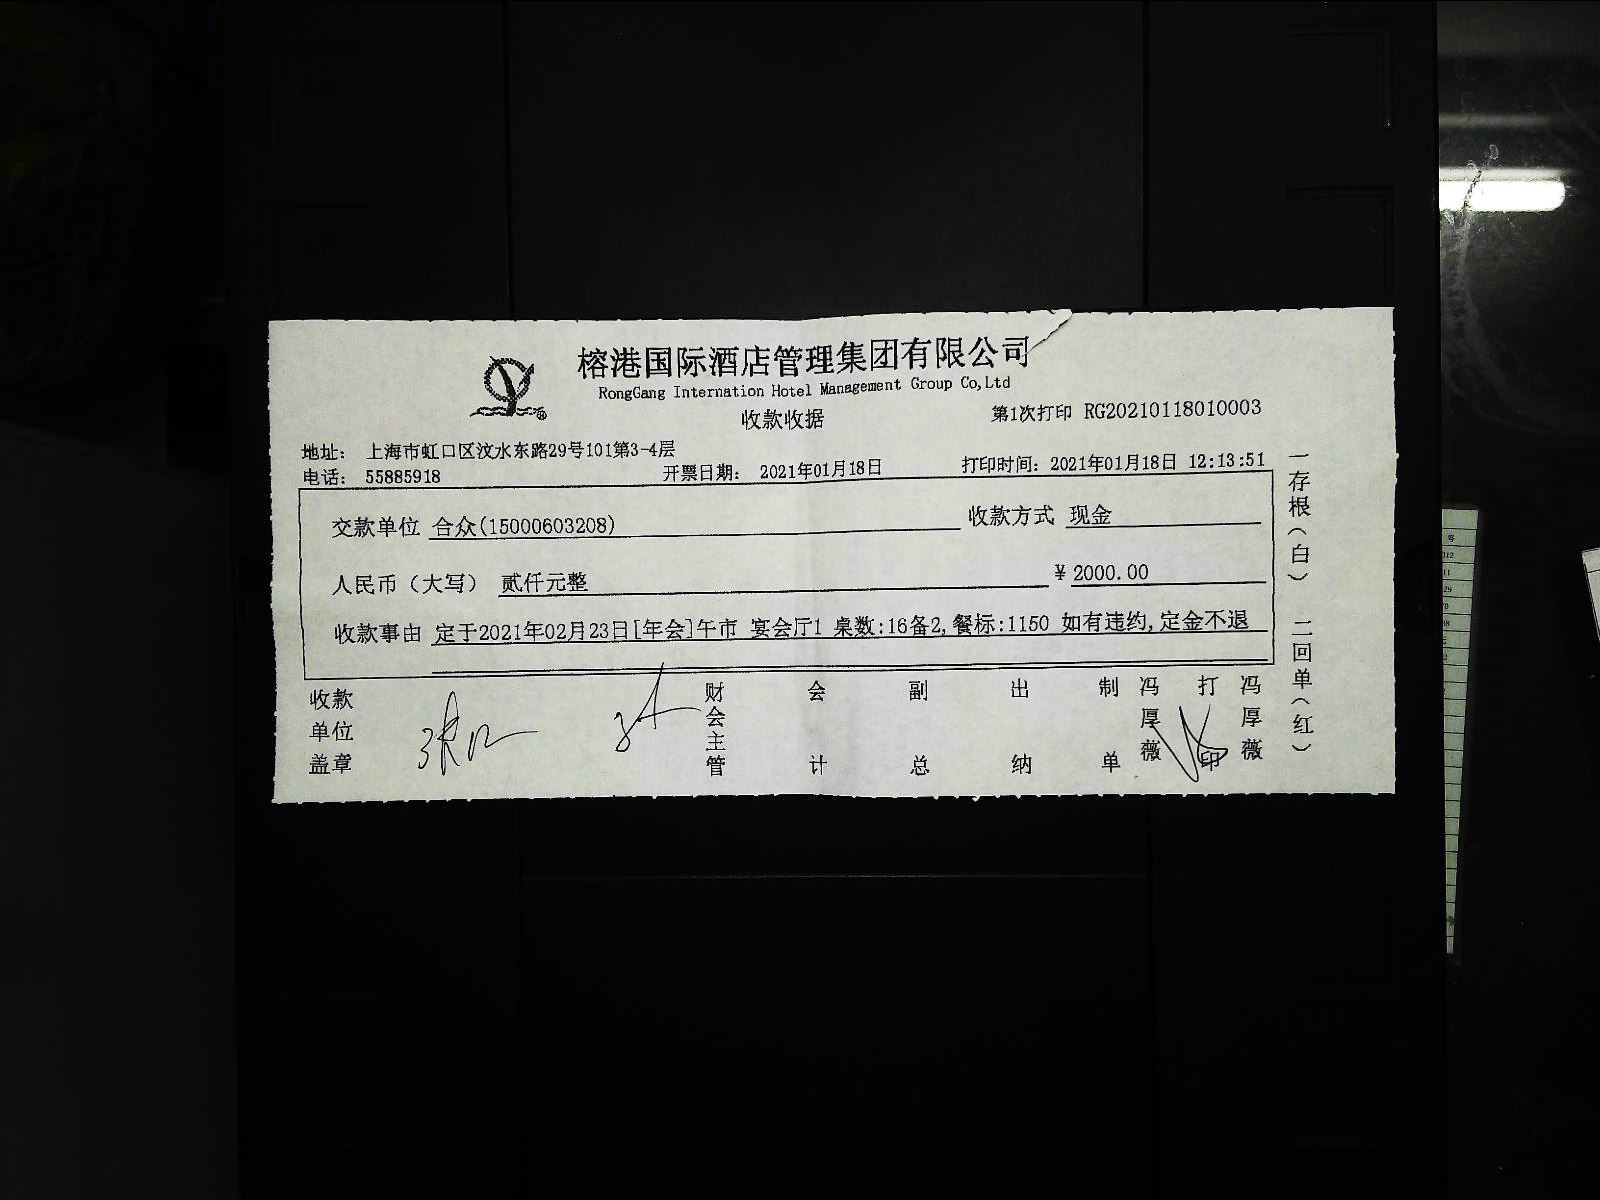 榕港国际酒店管理集团有限公司
RongGang Internation Hotel Management Group Co,Ltd
收款收据
第1次打印 RG20210118010003
地址： 上海市虹口区汶水东路29号101第3-4层
电话： 55885918
开票日期： 2021年01月18日
打印时间：2021年01月18日 12:13:51
交款单位 合众(15000603208)
收款方式 现金
人民币（大写） 贰仟元整
¥ 2000.00
收款事由 定于2021年02月23日[年会]午市 宴会厅1 桌数:16备2,餐标:1150 如有违约,定金不退
收款单位盖章
财会主管
会计
副总
出纳
制单
冯厚薇
打印
冯厚薇
一存根（白） 二回单（红）